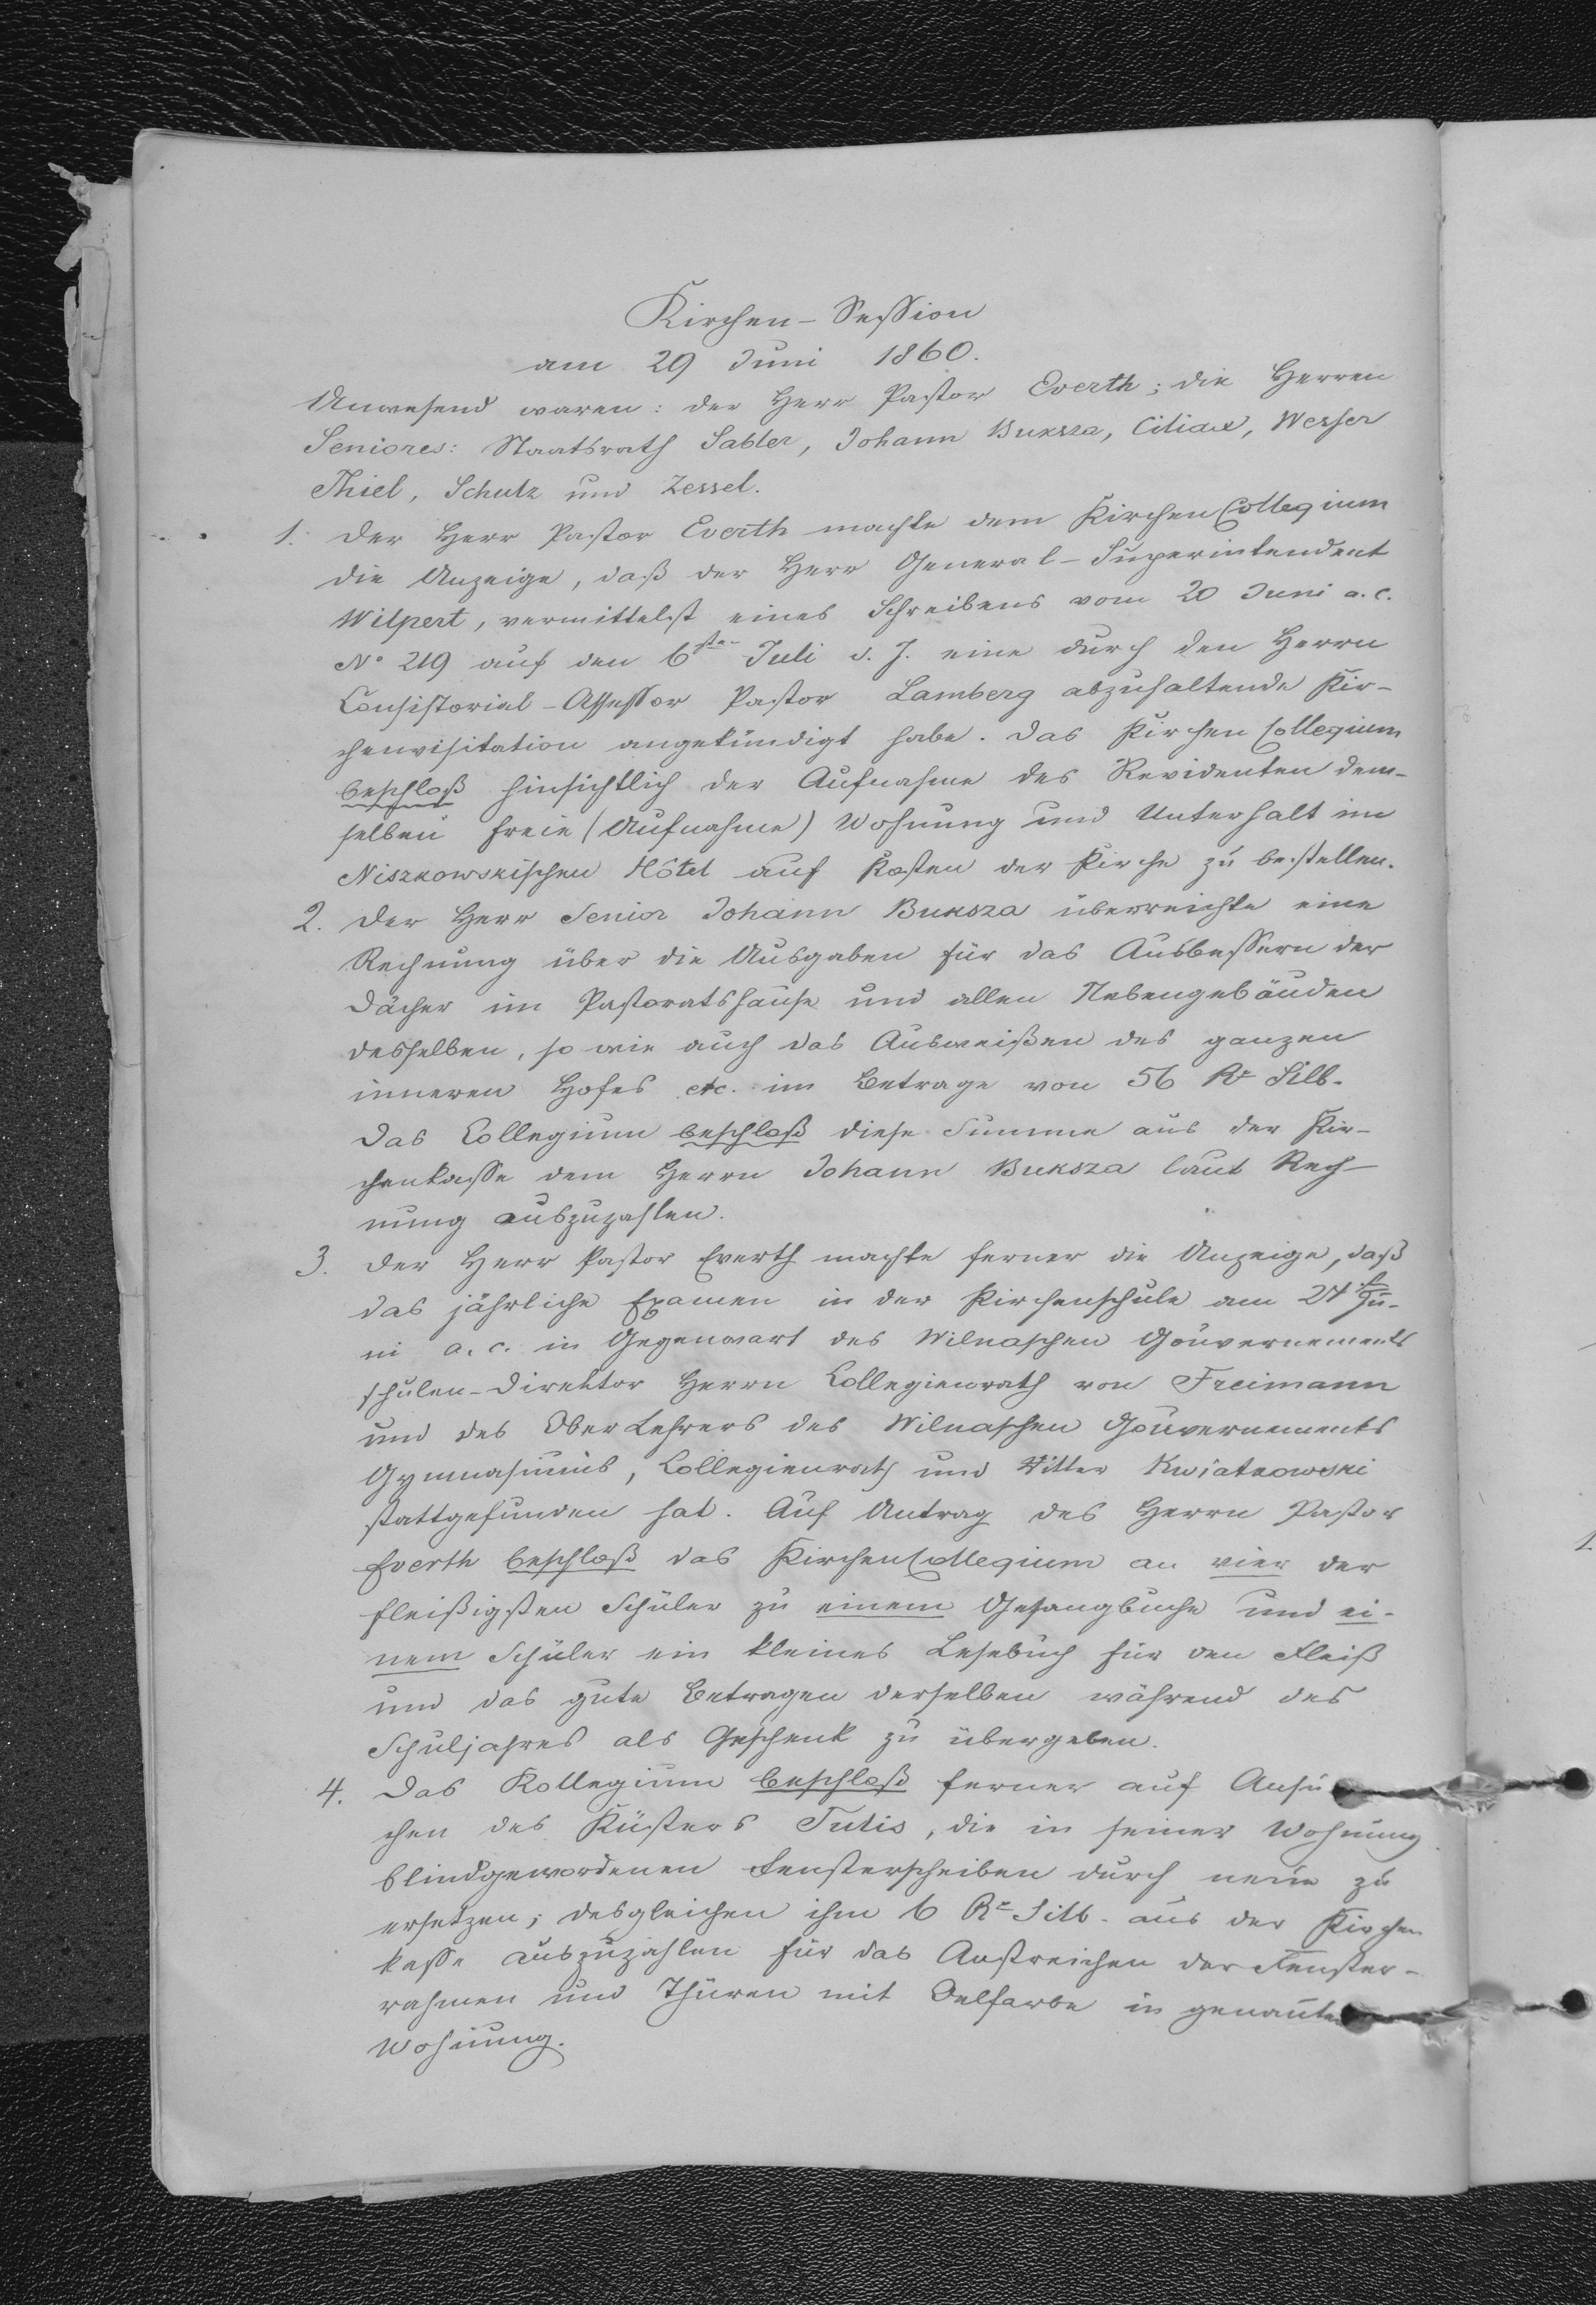 Kirchen-Session
am 29 Juni 1860.
Anwesend waren: der Herr Pastor Everth; die Herren
Seniores: Staatsrath Sabler, Johann Buksza, Ciliax, Wesser
Thiel, Schulz und Zessel.
1. Der Herr Pastor Everth machte dem Kirchen Collegium
die Anzeige, daß der Herr General-Superintendent
Wilpert, vermittelst eines Schreibens vom 20 Juni a. c.
No 219 auf den 6sten Juli d. J. eine durch den Herrn
Consistorial-Assessor Pastor Lamberg abzuhaltende Kir-
chenvisitation angekündigt habe. Das Kirchen Collegium
beschloß hinsichtlich der Aufnahme des Revidenten dem-
selben freie (Aufnahme) Wohnung und Unterhalt im
Niszkowskischen Hôtel auf Kosten der Kirche zu bestellen.
2. Der Herr Senior Johann Buksza überreichte eine
Rechnung über die Ausgaben für das Ausbessern der
Dächer im Pastoratshause und allen Nebengebäuden
desselben, so wie auch das Ausweißen des ganzen
inneren Hofes etc. im Betrage von 56 Rr Silb.
Das Collegium beschloß diese Summe aus der Kir-
chenkasse dem Herrn Johann Buksza laut Rech-
nung auszuzahlen.
3. Der Herr Pastor Everth machte ferner die Anzeige, daß
das jährliche Examen in der Kirchenschule am 24t Ju-
ni a. c. in Gegenwart des Wilnaschen Gouvernements
schulen-Direktor Herrn Collegienrath von Freimann
und des Ober Lehrers des Wilnaschen Gouvernements
Gymnasiums, Collegienrath und Ritter Kwiatkowski
stattgefunden hat. Auf Antrag des Herrn Pastor
Everth beschloß das Kirchen Collegium an vier der
fleißigsten Schüler zu einem Gesangbuche und ei-
nem Schüler ein kleines Lesebuch für den Fleiß
und das gute Betragen derselben während des
Schuljahres als Geschenk zu übergeben.
4. Das Kollegium beschloß ferner auf Ansu
chen des Küsters Tutis, die in seiner Wohnung
blindgewordenen Fensterscheiben durch neue zu
ersetzen; desgleichen ihm 6 Rr Silb. aus der Kirchen
kasse auszuzahlen für das Anstreichen der Fenster-
rahmen und Thüren mit Oelfarbe in genannte
Wohnung.